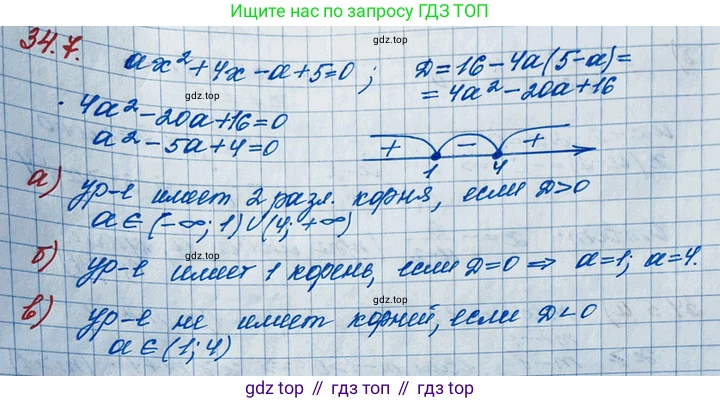 Ищите нас по запросу ГДЗ ТОП
34.7.
ax² + 4x - a + 5 = 0 ; D = 16 - 4a(5-a) =
= 4a² - 20a + 16
4a² - 20a + 16 = 0
a² - 5a + 4 = 0
+ - +
1 4
а) ур-е имеет 2 разл. корня, если D > 0
a ∈ (-∞; 1) ∪ (4; +∞)
б) ур-е имеет 1 корень, если D = 0 ⇒ a = 1; a = 4.
в) ур-е не имеет корней, если D < 0
a ∈ (1; 4)
gdz.top
gdz.top
gdz.top
gdz.top
gdz top // гдз топ // гдз top